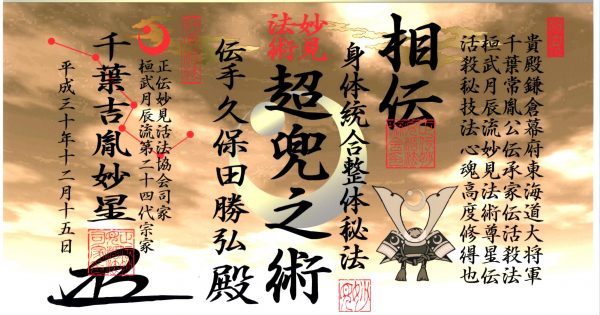 貴殿鎌倉幕府東海道大将軍
千葉常胤公伝承家伝活殺法
桓武月辰流妙見法術尊星伝
活殺秘技法心魂高度修得也
相伝
身体統合整体秘法
妙見
法術
超兜之術
伝手久保田勝弘殿
正伝妙見活法協会司家
桓武月辰流第二十四代宗家
千葉吉胤妙星
平成三十年十二月十五日